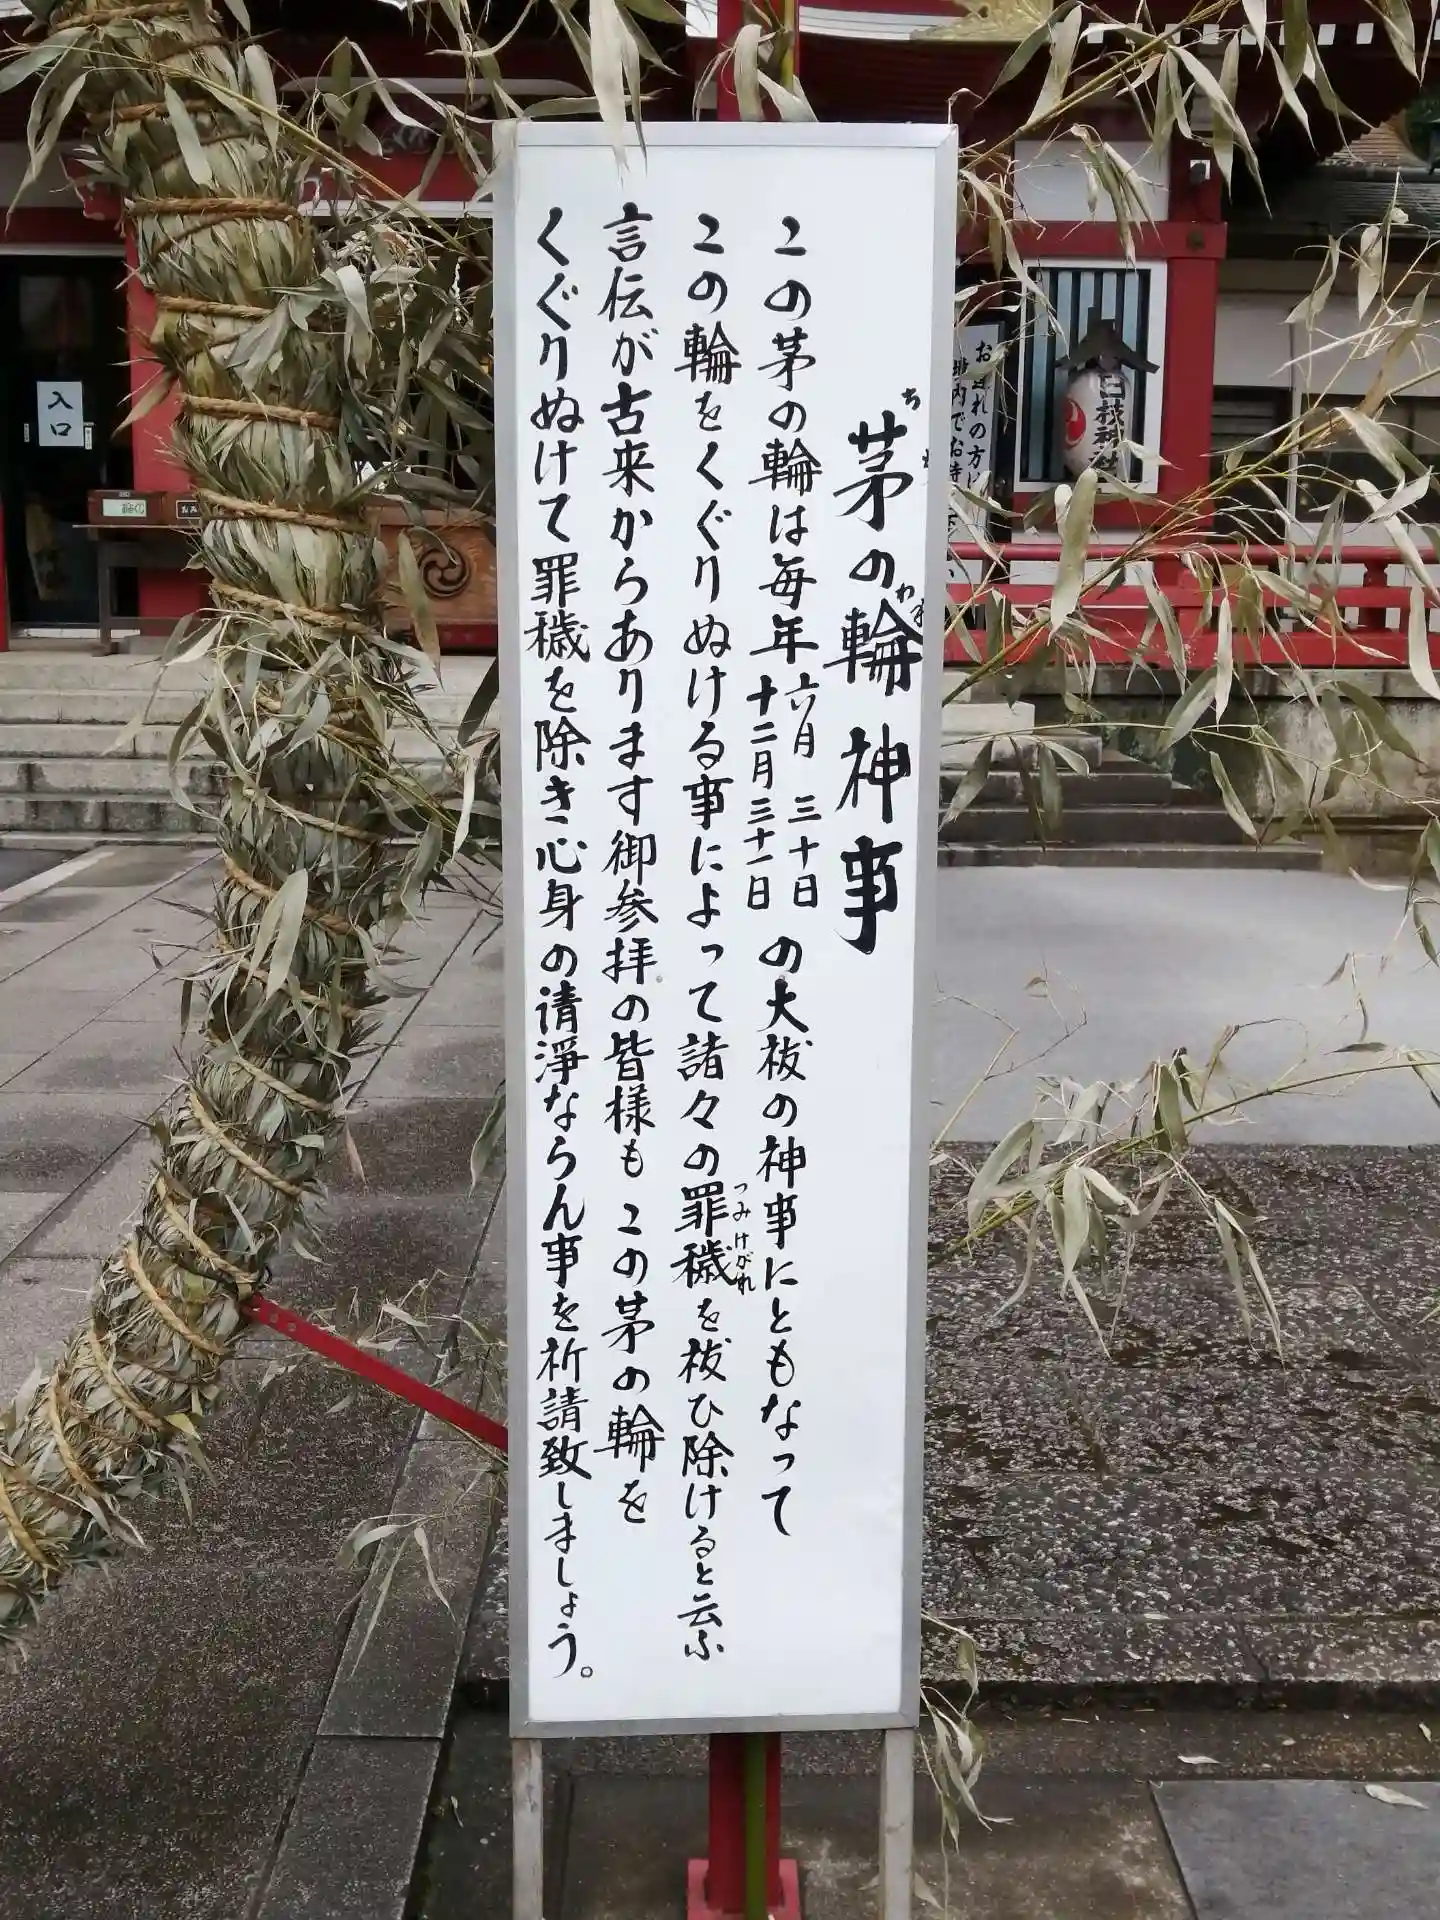 茅の輪神事
この茅の輪は毎年六月三十日
十二月三十一日
の大祓の神事にともなって
この輪をくぐりぬける事によって諸々の罪穢を祓ひ除けると云ふ
つみけがれ
言伝が古来からあります御参拝の皆様もこの茅の輪を
くぐりぬけて罪穢を除き心身の清浄ならん事を祈請致しましょう。
入口
日枝神社